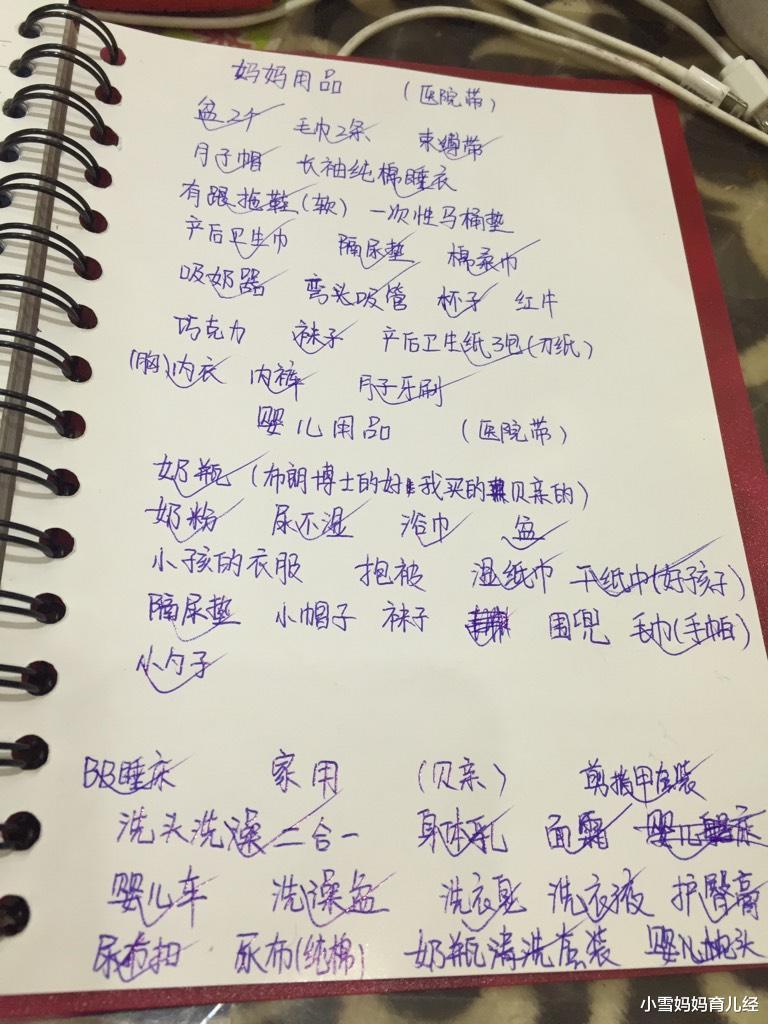 妈妈用品 (医院带)
盆2个 毛巾2条 束缚带
月子帽 长袖纯棉睡衣
有跟拖鞋(软) 一次性马桶垫
产后卫生巾 隔尿垫 棉柔巾
吸奶器 弯头吸管 杯子 红牛
巧克力 袜子 产后卫生纸3包(刀纸)
(胸)内衣 内裤 月子牙刷
婴儿用品 (医院带)
奶瓶 (布朗博士的好 我买的贝亲的)
奶粉 尿不湿 浴巾 盆
小孩的衣服 抱被 湿纸巾 干纸巾(好孩子)
隔尿垫 小帽子 袜子 围兜 毛巾(手帕)
小勺子
BB睡床 家用 (贝亲) 剪指甲套装
洗头洗澡二合一 身体乳 面霜 婴儿床
婴儿车 洗澡盆 洗衣皂 洗衣液 护臀膏
尿布扣 尿布(纯棉) 奶瓶清洗套装 婴儿枕头
小雪妈妈育儿经